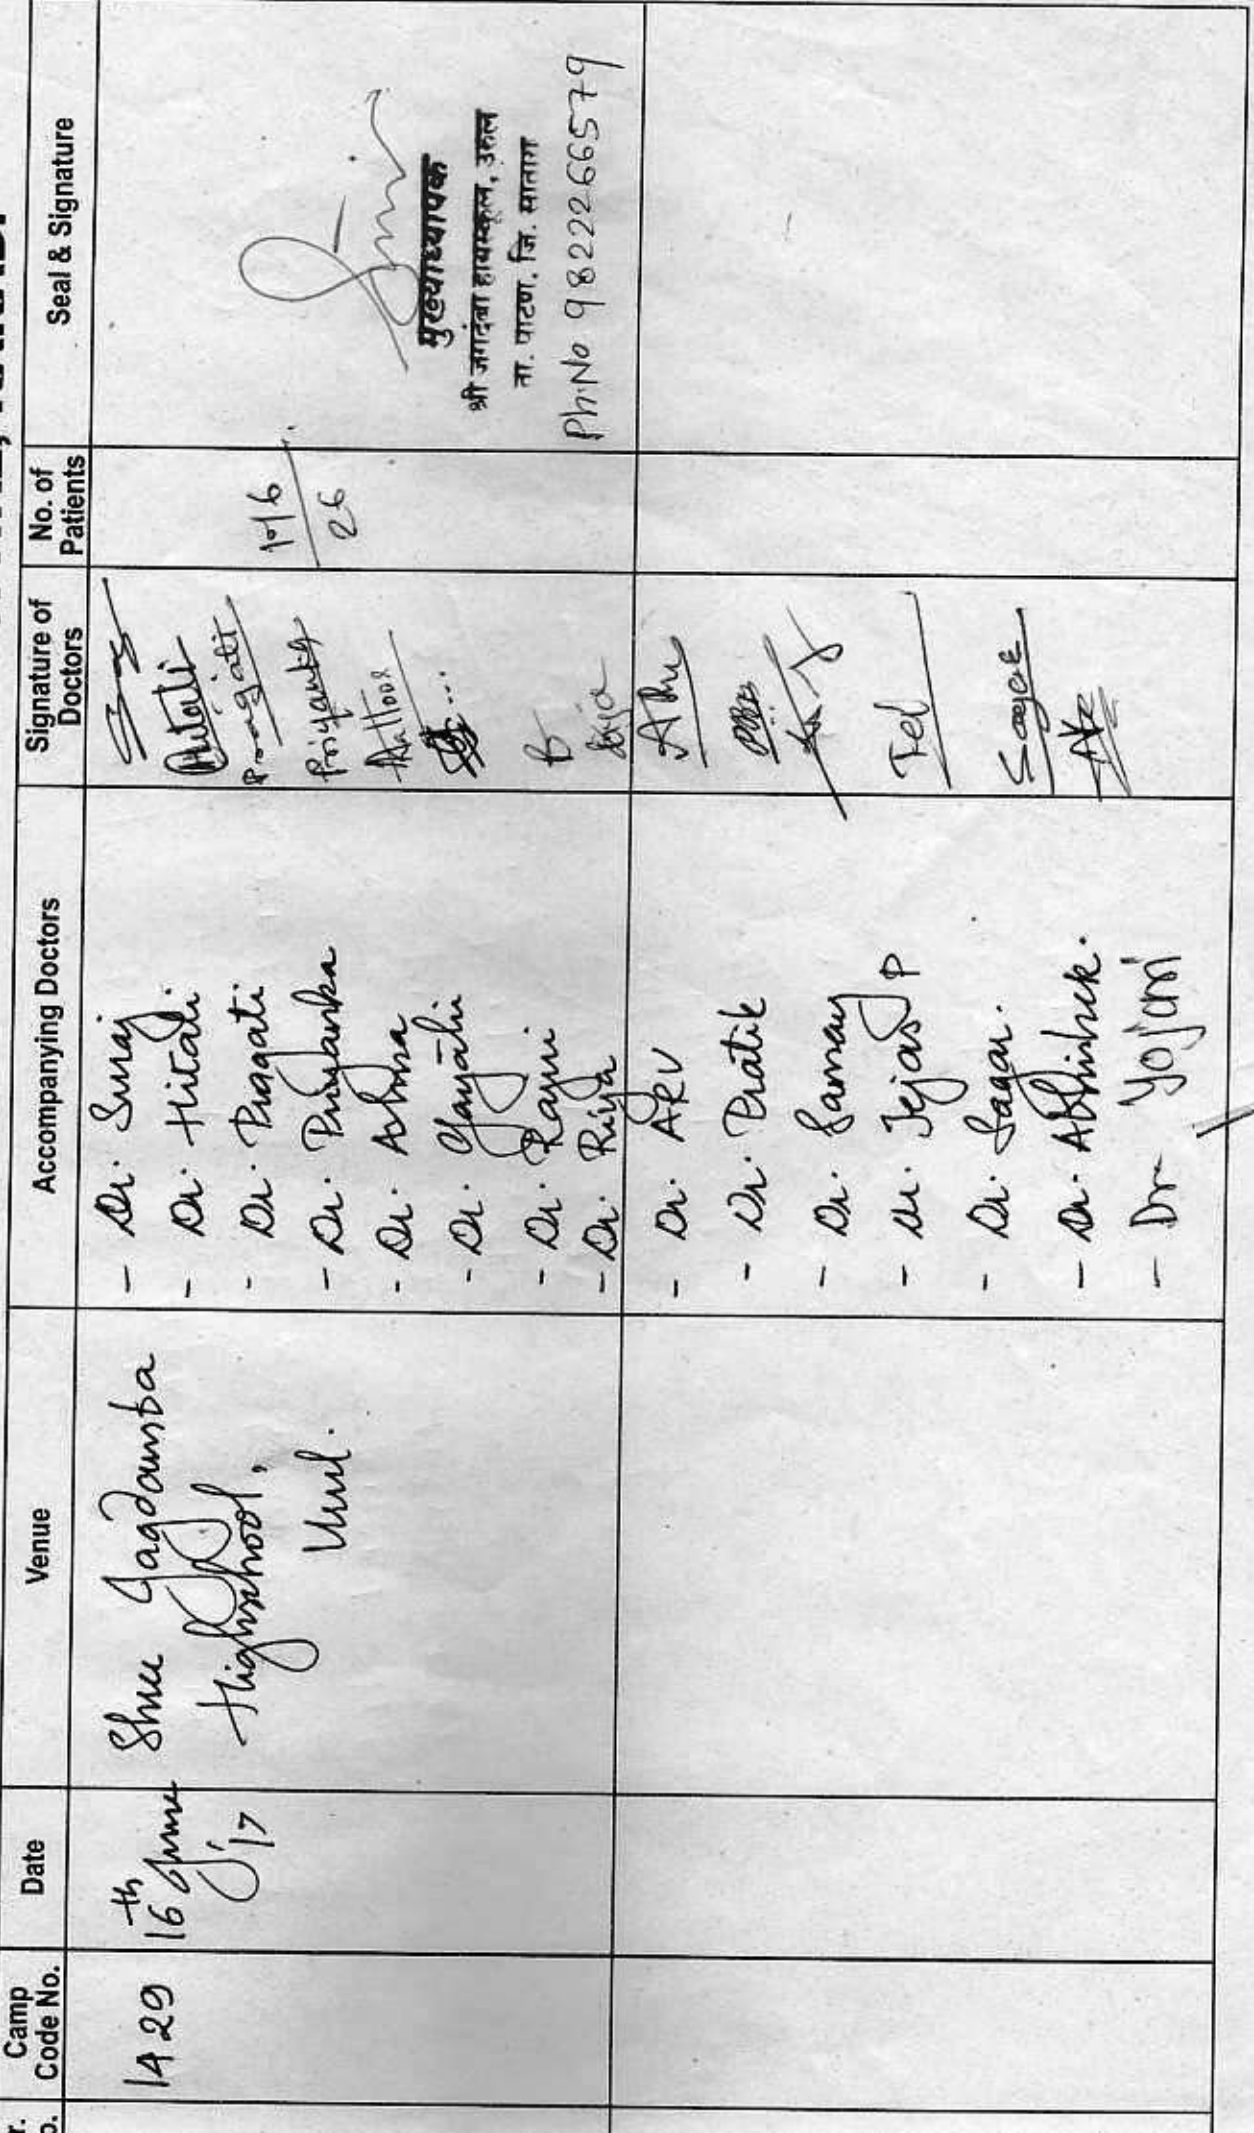 Camp
Code No.
Date
Venue
Accompanying Doctors
Signature of
Doctors
No. of
Patients
Seal & Signature
1429
16th June
'17
Shree Jagdamba
Highschool,
Urul.
- Dr. Suraj
- Dr. Hitali
- Dr. Pragati
- Dr. Priyanka
- Dr.
- Dr. Gayatri
- Dr. Rajni
- Dr. Riya
Pragati
Priyanka
26
मुख्याध्यापक
श्री जगदंबा हायस्कूल, उरुल
ता. पाटण, जि. सातारा
Ph.No 9822266579
- Dr. ARV
- Dr. Pratik
- Dr.
- Dr. Tejas P
- Dr. Sagar.
- Dr. Abhishek.
- Dr
Tej
Sagar